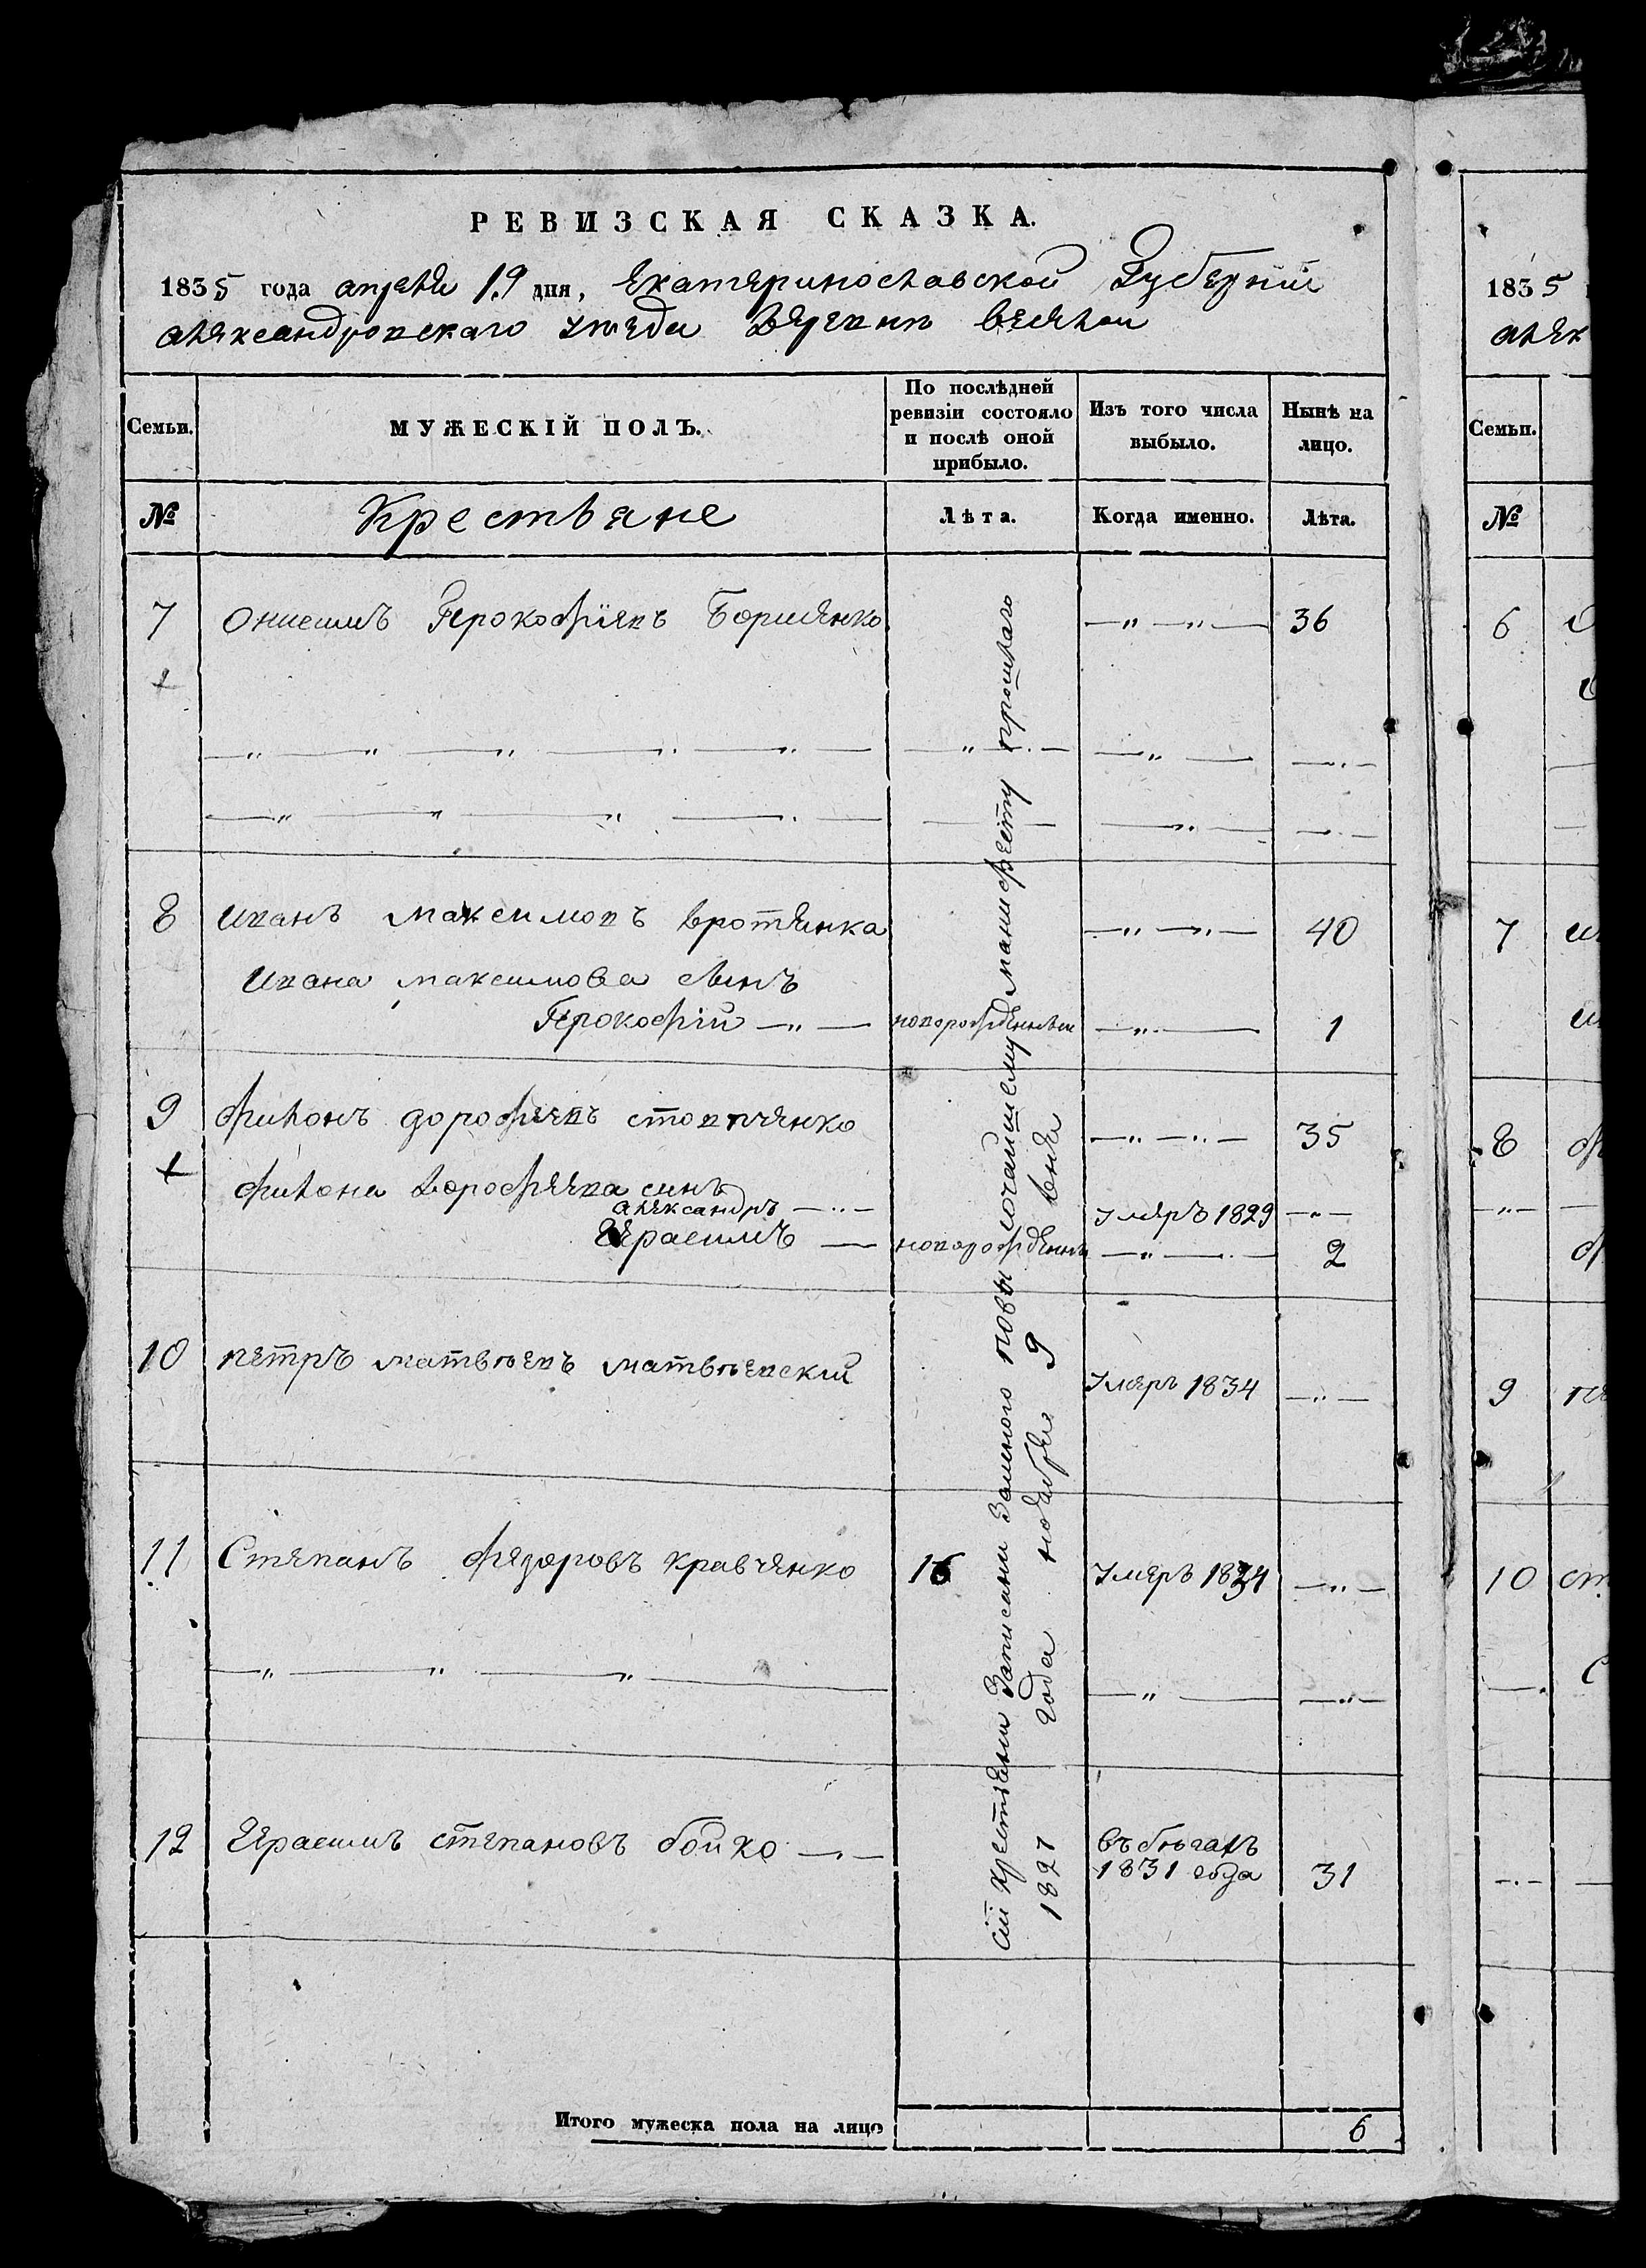 РЕВИЗСКАЯ СКАЗКА.
1835 года апреля 19 дня, Екатеринославской Губернiи
александровскаго уѣзда Деревнѣ веселои
Семьи.
МУЖЕСКІЙ ПОЛЪ.
По послѣдней ревизіи состояло и послѣ оной прибыло.
Изъ того числа выбыло.
Нынѣ на лицо.
№
Крестьяне
Лѣта.
Когда именно.
Лѣта.
7 Онисимъ Прокофіевъ Борисенко 36
8 Иванъ Максимовъ кротенка 40
Ивана максимова сынъ
Прокофій новорожденный 1
9 филонъ дорофеевъ стовпченко 35
филона Дорофеева синъ
александръ умеръ 1829
Герасимъ новорожденны 2
10 петръ матвѣевъ матвѣевскій умеръ 1834
11 Степанъ федоровъ кравченко 16 умеръ 1834
12 Герасимъ степановъ бойко въ бѣгахъ
1831 года 31
Сiи крестьяни Записани Заменого повысочаишему манифесту прошлаго
1827 года ноября 9 дня
Итого мужеска пола на лицо 6
1835
алек
Семьи.
№
6
7
8
9
10